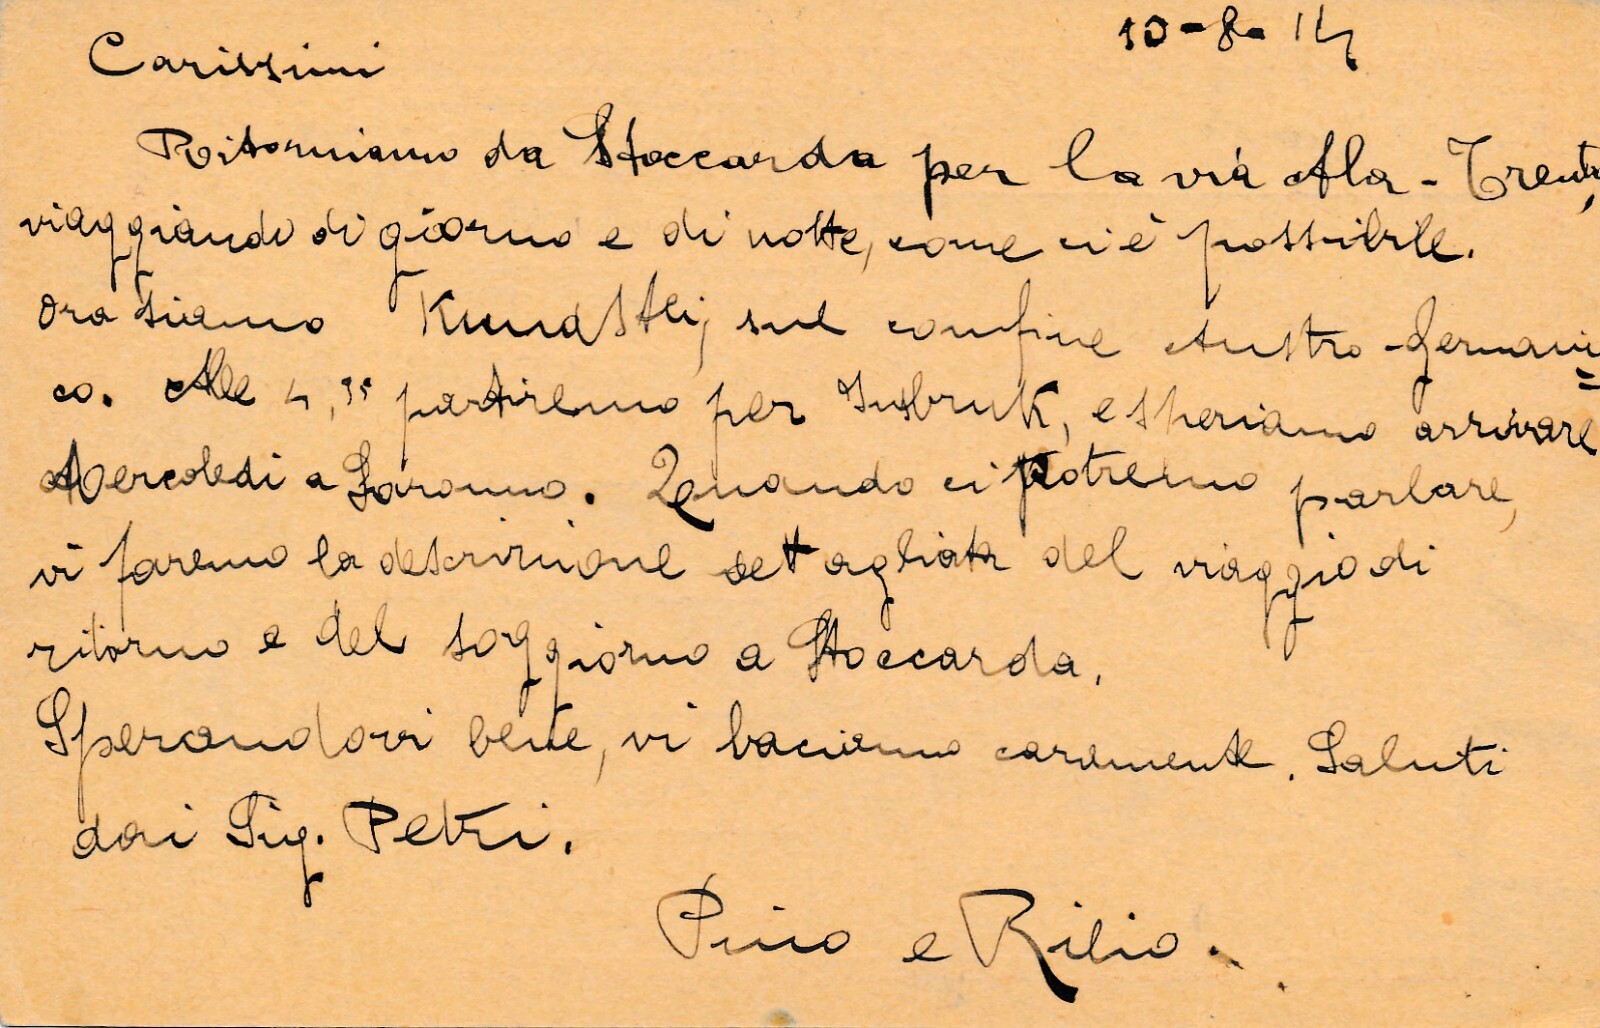 10-8-14
Carissimi
Ritorniamo da Stoccarda per la via Ala-Trento,
viaggiando di giorno e di notte, come ci è possibile.
Ora siamo sul confine Austro-Germani=
co. Alle 4,35 partiremo per Insbruk, e speriamo arrivare
Mercoledi a Saronno. Quando ci potremo parlare,
vi faremo la descrizione dettagliata del viaggio di
ritorno e del soggiorno a Stoccarda.
Sperandovi bene, vi baciamo caramente. Saluti
dai Sig. Petri.
Pino e Rilio.